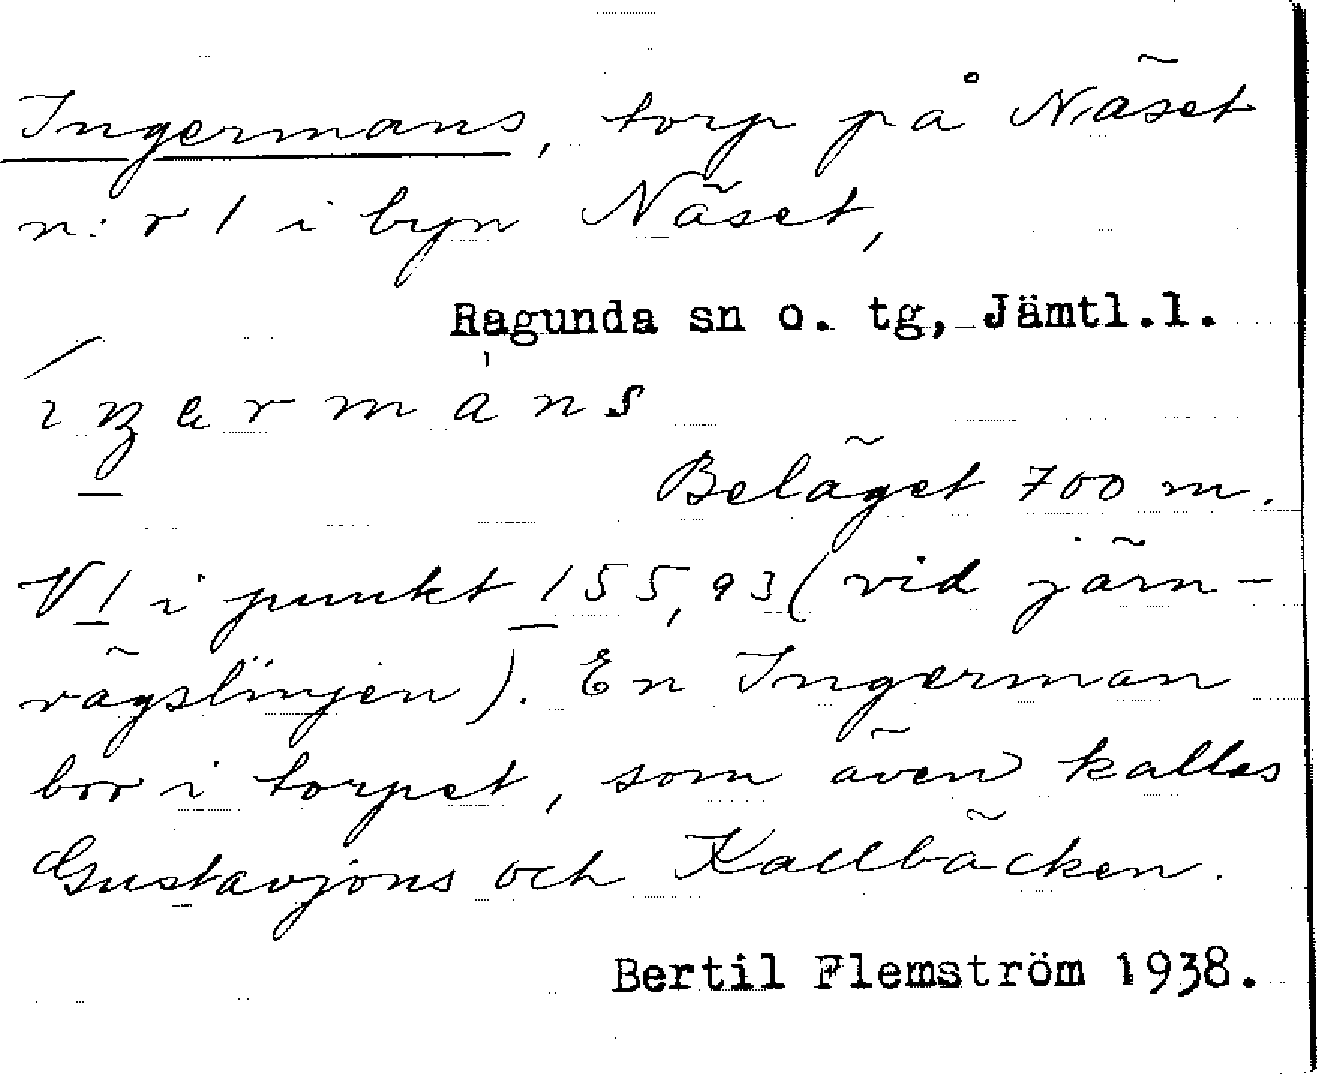 Ingermans, torp på Näset
n:r 1 i byn Näset,
Ragunda sn o. tg, Jämtl.l.
Beläget 700 m.
V 1 i punkt 155,93 (vid järn-
vägslinjen). En Ingerman
bor i torpet, som även kallas
Gustavjons och Kallbäcken.
Bertil Flemström 1938.